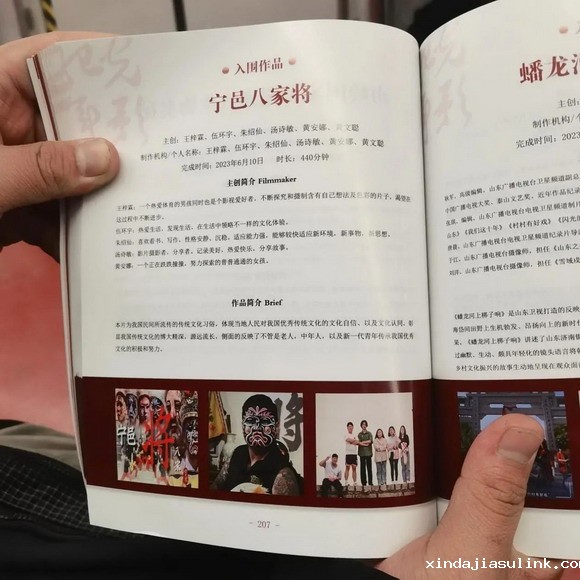 入围作品
宁邑八家将
主创：王梓霖、伍环宇、朱绍仙、汤诗敏、黄安娜、黄文聪
制作机构/个人名称：王梓霖、伍环宇、朱绍仙、汤诗敏、黄安娜、黄文聪
完成时间：2023年6月10日 时长：440分钟
主创简介 Filmmaker
王梓霖：一个热爱体育的男孩同时也是个影视爱好者，不断探究和摄制含有自己想法及色彩的片子，渴望在
这过程中不断进步。
伍环宇：热爱生活，发现生活，在生活中领略不一样的文化体验。
朱绍仙：喜欢看书、写作，性格安静、沉稳，适应能力强，能够较快适应新环境、新事物、新思想。
汤诗敏：影片摄影者、分享者。记录美好，热爱快乐，分享故事。
黄安娜：一个正在跌跌撞撞，努力探索的普普通通的女孩。
作品简介 Brief
本片为我国民间所流传的传统文化习俗，体现当地人民对我国优秀传统文化的文化自信、以及文化认同，彰
显我国传统文化的博大精深，源远流长，侧面的反映了不管是老人，中年人，以及新一代青年传承我国优秀
文化的积极和努力。
宁邑
将
八家
将
- 207 -
入
蟠龙河
主创
制作机构/个
完成时间
山东广播电视台卫星频道副总
中国广播电视大奖、泰山文艺奖。近年作品纪录
山东广播电视台卫星频道制片
山东》《我们这十年》《村村有好戏》《闪光
山东广播电视台卫星频道纪录片导演
山东广播电视台摄像师，担任《东之
山东广播电视台摄像师，担任《雪域戍
《蟠龙河上梆子响》是山东卫视打造的反映
在田野上生机勃发、昂扬向上的新时
果。《蟠龙河上梆子响》讲述了山东济南
过幽默、生动、颇具年轻化的镜头语言将
乡村文化振兴的故事生动地呈现在观众面
xindajiasulink.com